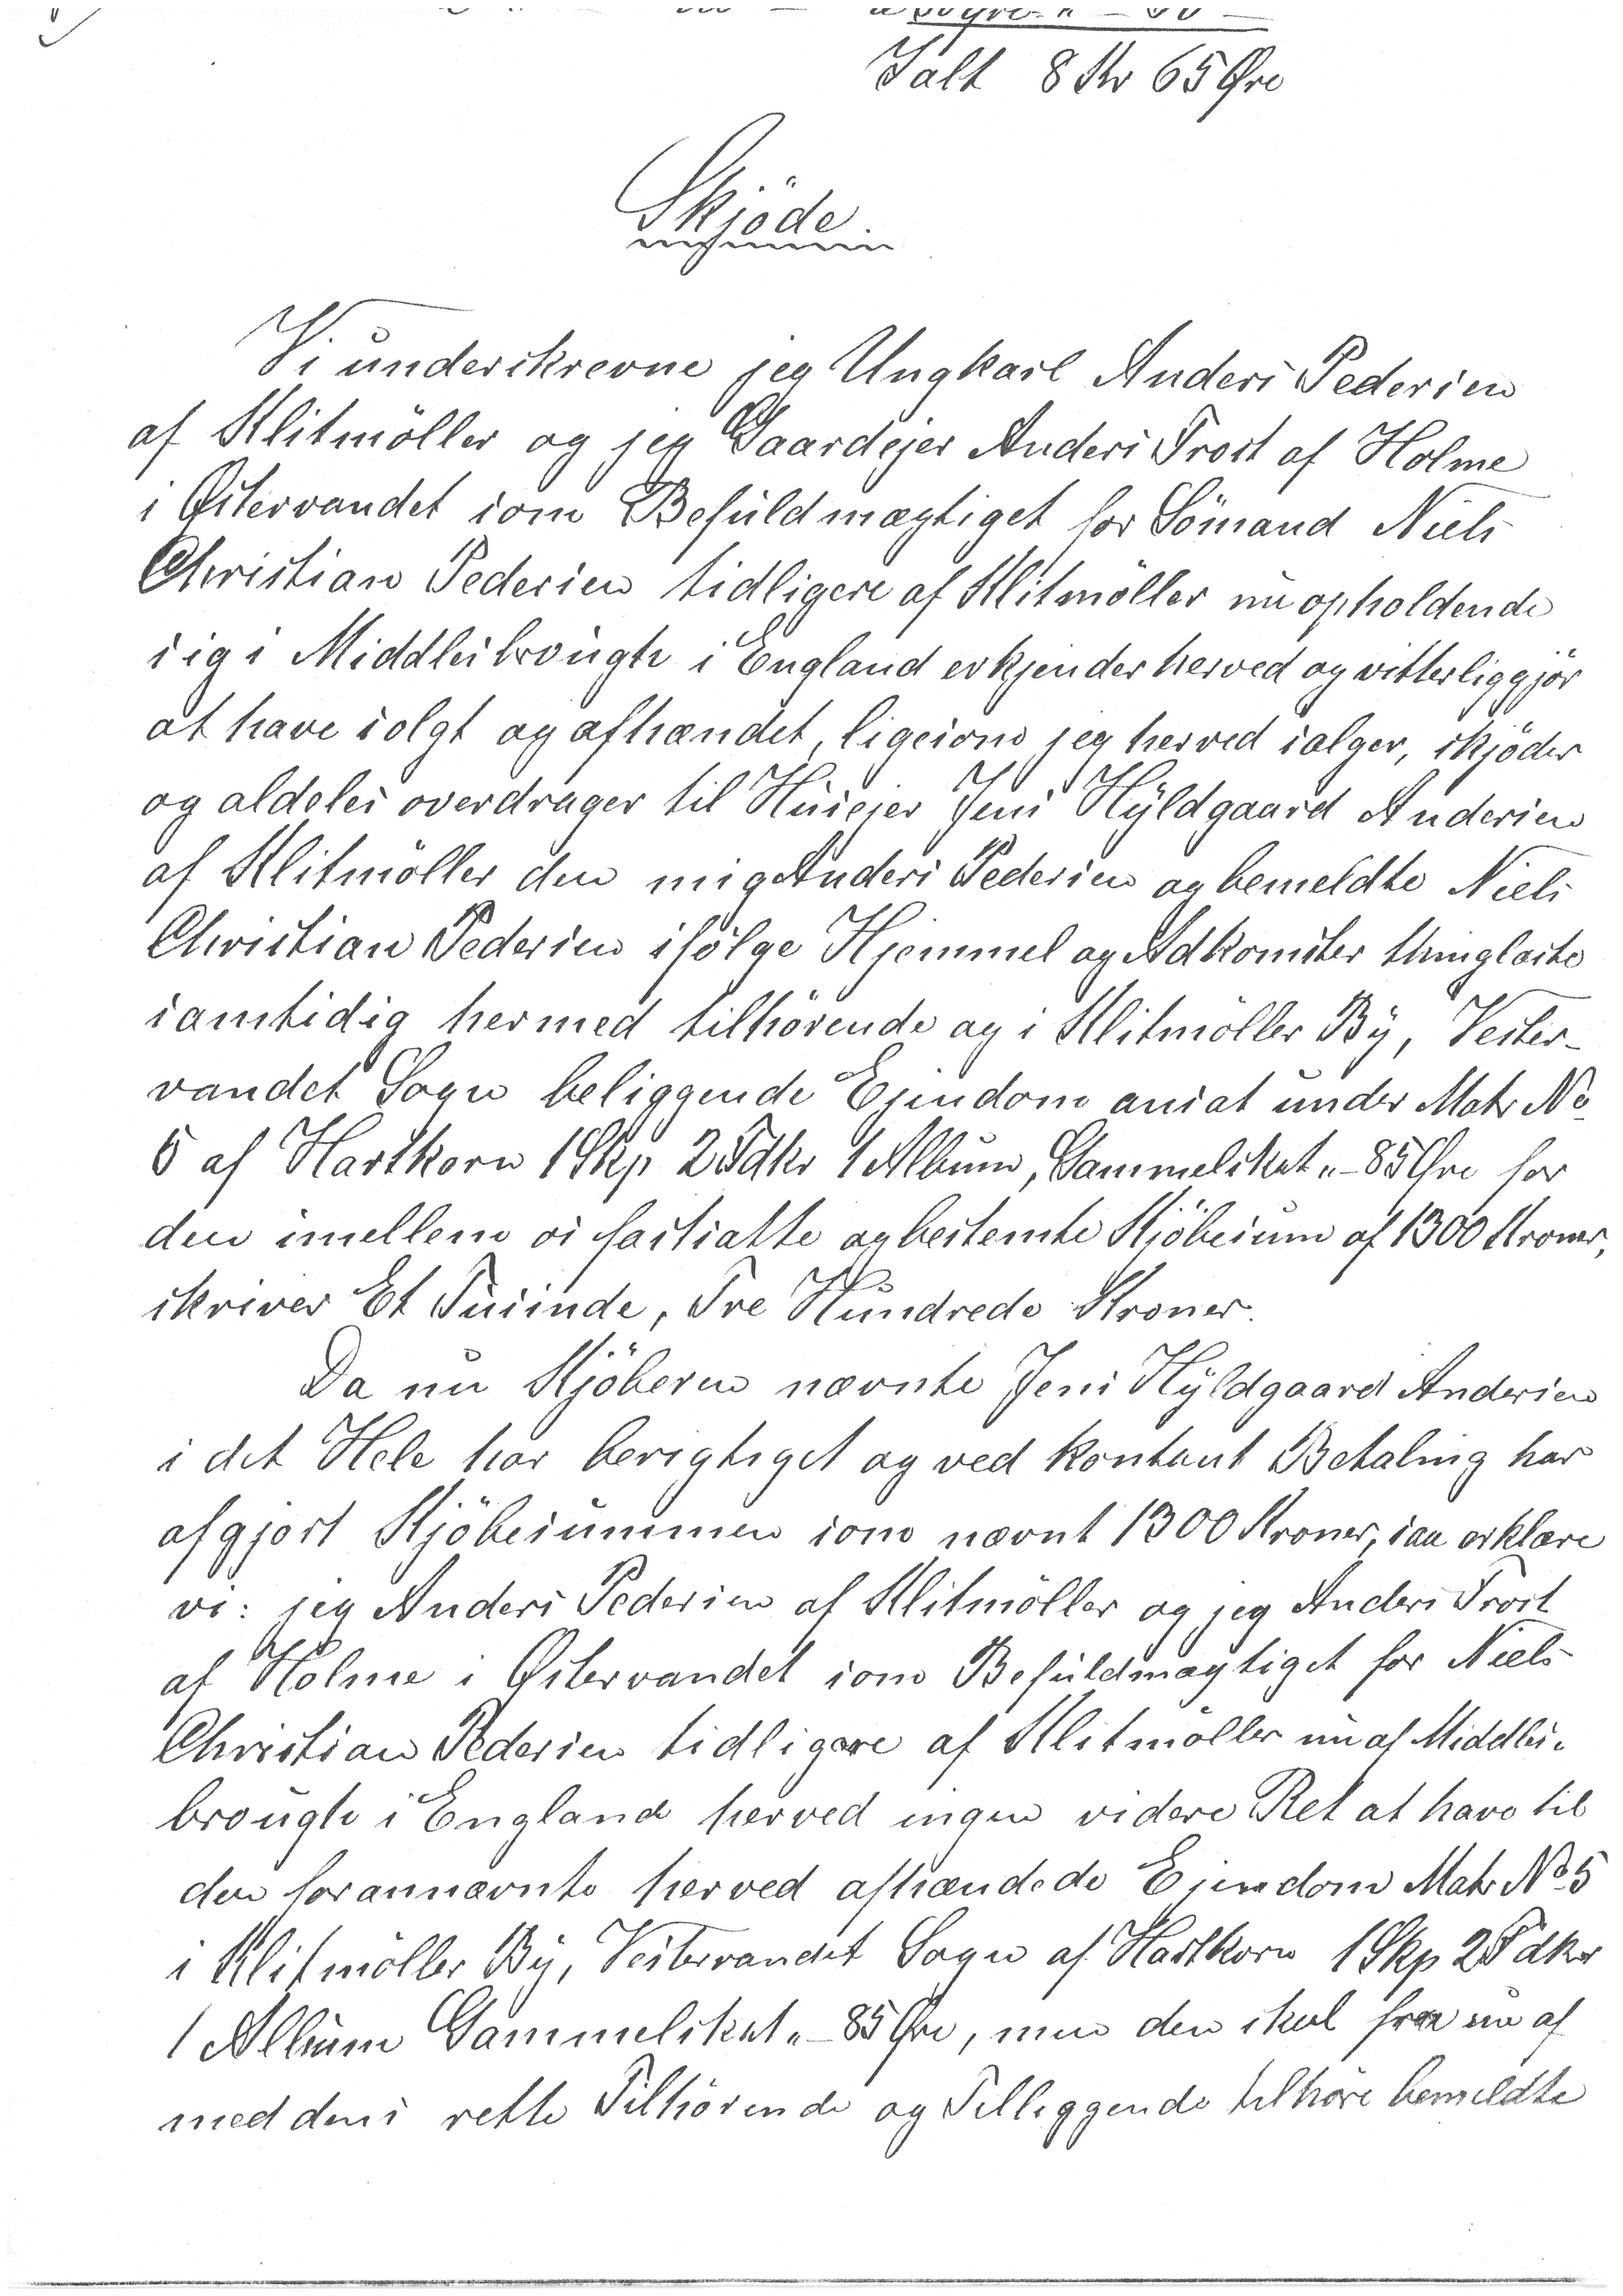 Ialt 8 Kr 65 Øre
Skjöde.
Vi underskrevne jeg Ungkarl Anders Pedersen
af Klitmöller og jeg Gaardejer Anders Trost af Holme
i Østervandet som Befuldmægtiget for Sömand Niels
Christian Pedersen tidligere af Klitmöller nu opholdende
sig i Middlesbrough i England erkjender herved og vitterliggjör
at have solgt og afhændet, ligesom jeg herved sælger, skjöder
og aldeles overdrager til Husejer Jens Hyldgaard Andersen
af Klitmöller den mig Anders Pedersen og bemeldte Niels
Christian Pedersen ifölge Hjemmel og Adkomster thinglæste
samtidig hermed tilhörende og i Klitmöller By, Vester-
vandet Sogn beliggende Ejendom ansat under Matr No
5 af Hartkorn 1 Skp 2 Fdkr 1 Album, Gammelskat „ - 85 Øre for
den imellem os fastsatte og bestemte Kjöbesum af 1300 Kroner,
skriver Et Tusinde, Tre Hundrede Kroner.
Da nu Kjöberen nævnte Jens Hyldgaard Andersen
i det Hele har berigtiget og ved kontant Betaling har
afgjort Kjöbesummen som nævnt 1300 Kroner, saa erklære
vi: jeg Anders Pedersen af Klitmöller og jeg Anders Trost
af Holme i Østervandet som Befuldmægtiget for Niels
Christian Pedersen tidligere af Klitmöller nu af Middles-
brough i England herved ingen videre Ret at have til
den forannævnte herved afhændede Ejendom Matr No 5
i Klitmöller By, Vestervandet Sogn af Hartkorn 1 Skp 2 Fdkr
1 Album Gammelskat „ - 85 Øre, men den skal fra nu af
med dens rette Tilhörende og Tilliggende tilhöre bemeldte